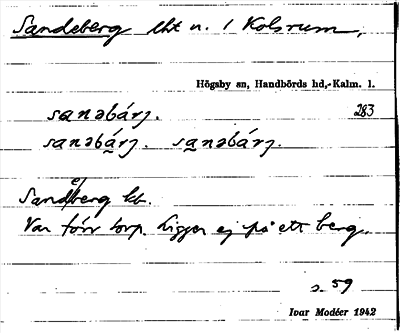 Sandeberg lht n. 1 Kolsrum,
Högsby sn, Handbörds hd,- Kalm. l.
sanəbárj. 283
sanəbárj. sanəbárj.
Sandeberg kb.
Var förr torp. Ligger ej på ett berg.
s. 59
Ivar Modéer 1942